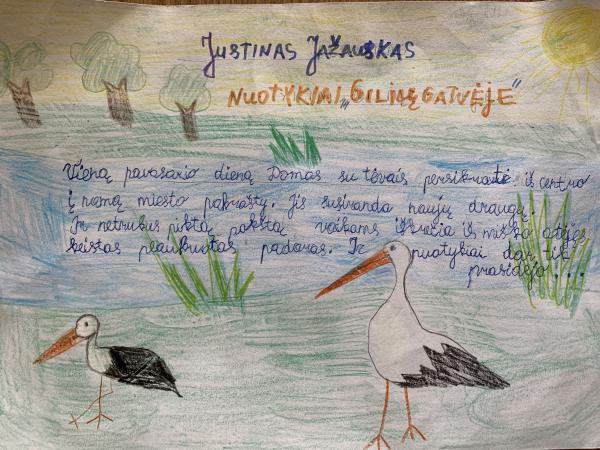 JUSTINAS JAŽAUSKAS
NUOTYKIAI „GILIŲ GATVĖJE“
Vieną pavasario dieną Domas su tėvais persikraustė iš centro
į namą miesto pakrašty. Jis susiranda naujų draugų.
Ir netrukus piktą pokštą vaikams iškrečia iš miško atėjęs
keistas plaukuotas padaras. Ir nuotykiai dar tik
prasidėjo...